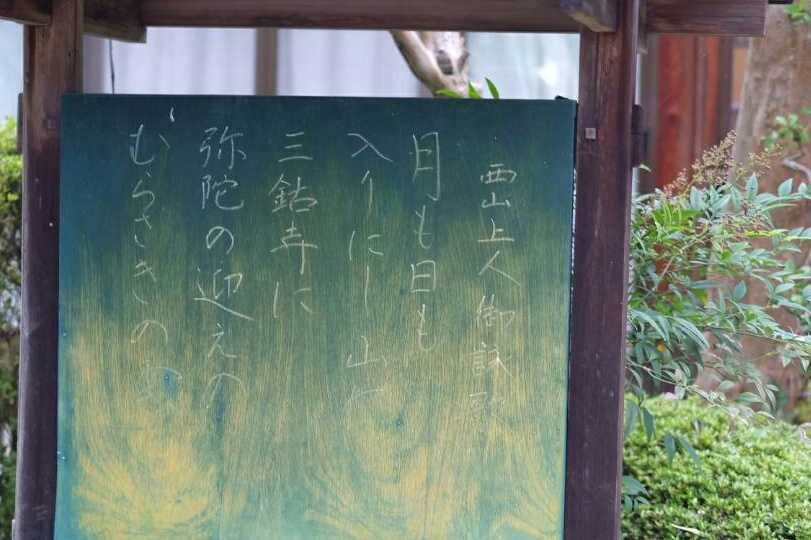 西山上人御詠歌
月も日も
入りにし山
三鈷寺に
弥陀の迎えの
むらさきの